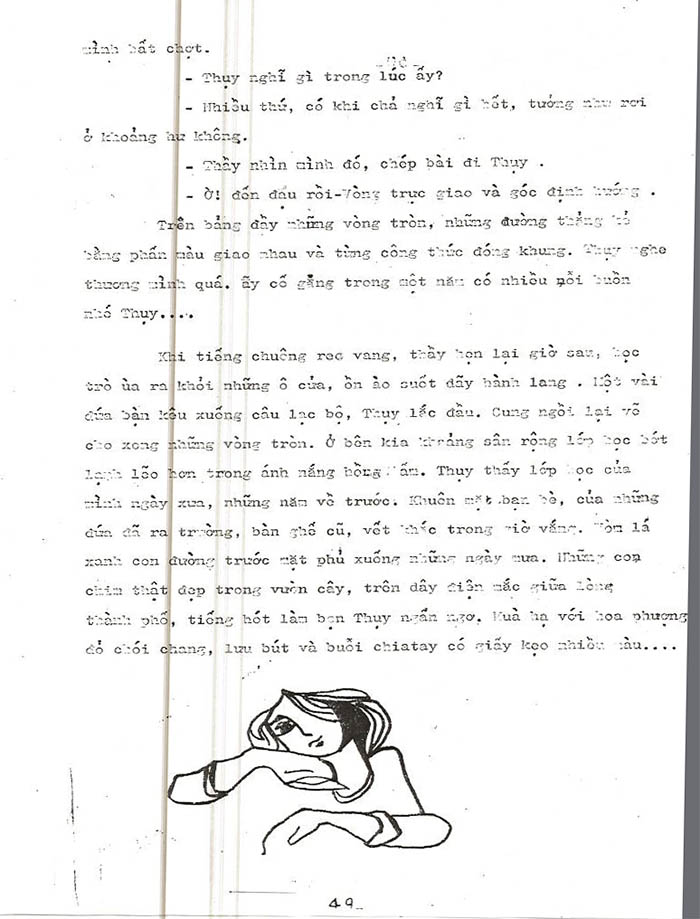 mình bất chợt.
- Thụy nghĩ gì trong lúc ấy?
- Nhiều thứ, có khi chả nghĩ gì hết, tưởng như rơi
ở khoảng hư không.
- Thầy nhìn mình đó, chép bài đi Thụy .
- Ờ! đến đâu rồi-Vòng trực giao và góc định hướng .
Trên bảng đầy những vòng tròn, những đường thẳng kẻ
bằng phấn màu giao nhau và từng công thức đóng khung. Thụy nghe
thương mình quá. ấy cố gắng trong một năm có nhiều nỗi buồn
nhớ Thụy....
Khi tiếng chuông reo vang, thầy hẹn lại giờ sau, học
trò ùa ra khỏi những ô cửa, ồn ào suốt dãy hành lang . Một vài
đứa bạn kêu xuống câu lạc bộ, Thụy lắc đầu. Cung ngồi lại vẽ
cho xong những vòng tròn. Ở bên kia khoảng sân rộng lớp học bớt
lạnh lẽo hơn trong ánh nắng hồng ấm. Thụy thấy lớp học của
mình ngày xưa, những năm về trước. Khuôn mặt bạn bè, của những
đứa đã ra trường, bàn ghế cũ, vết khắc trong giờ vắng. Vòm lá
xanh con đường trước mặt phủ xuống những ngày mưa. Những con
chim thật đẹp trong vườn cây, trên dây điện mắc giữa lòng
thành phố, tiếng hót làm bọn Thụy ngẩn ngơ. Muà hạ với hoa phượng
đỏ chói chang, lưu bút và buổi chiatay có giấy kẹo nhiều màu....
49_